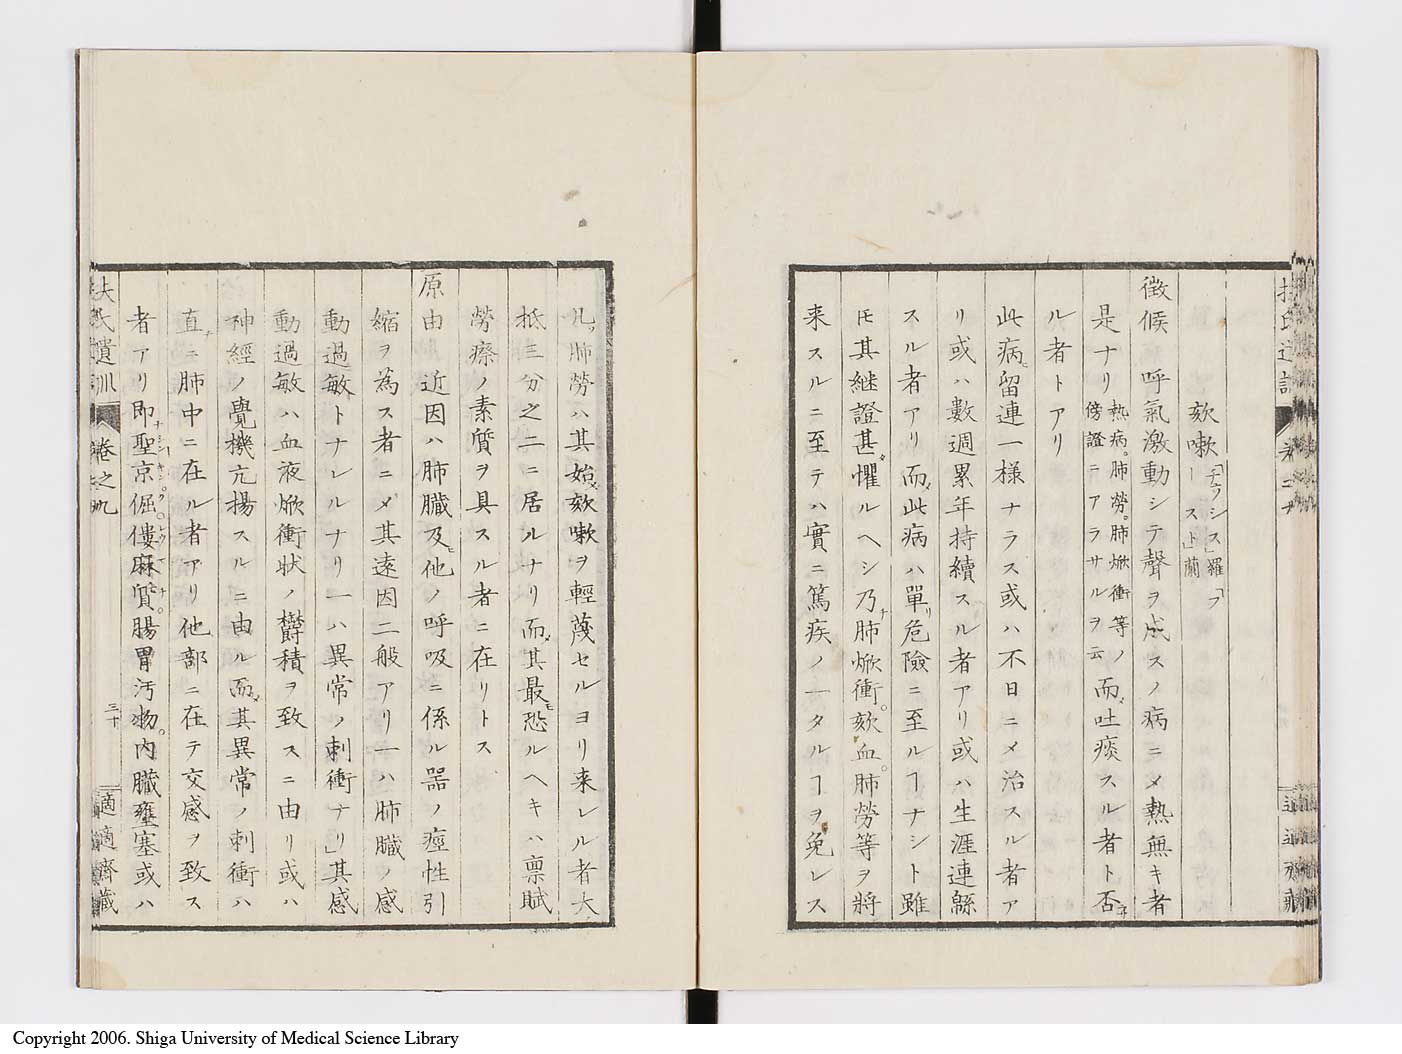 欬嗽「チュシス」羅「フースト」蘭
徴候 呼氣激動シテ聲ヲ成スノ病ニメ熱無キ者
是ナリ熱病。肺勞。肺焮衝等ノ傍證ニテアラサルヲ云而吐痰スル者ト否
ル者トアリ
此病留連一様ナラス或ハ不日ニメ治スル者ア
リ或ハ數週累年持續スル者アリ或ハ生涯連緜
スル者アリ而此病ハ單リ危險ニ至ルヿナシト雖
モ其継證甚懼ルヘシ乃肺焮衝。欬血。肺勞等ヲ將
来スルニ至テハ實ニ篤疾ノ一タルヿヲ免レス
凡ソ肺勞ハ其始欬嗽ヲ輕蔑セルヨリ来レル者大
抵三分之二ニ居ルナリ而其最恐ルヘキハ禀賦
勞瘵ノ素質ヲ具スル者ニ在リトス
原由 近因ハ肺臓及他ノ呼吸ニ係ル器ノ痙性引
縮ヲ為ス者ニメ其遠因二般アリ一ハ肺臓ノ感
動過敏トナレルナリ一ハ異常ノ刺衝ナリ」其感
動過敏ハ血液焮衝状ノ欝積ヲ致スニ由リ或ハ
神經ノ覺機亢揚スルニ由ル而其異常ノ刺衝ハ
直ニ肺中ニ在ル者アリ他部ニ在テ交感ヲ致ス
者アリ即聖京倔僂麻質腸胃汚物。内臓壅塞或ハ
扶氏遺訓 巻之九 三十 適適齋蔵